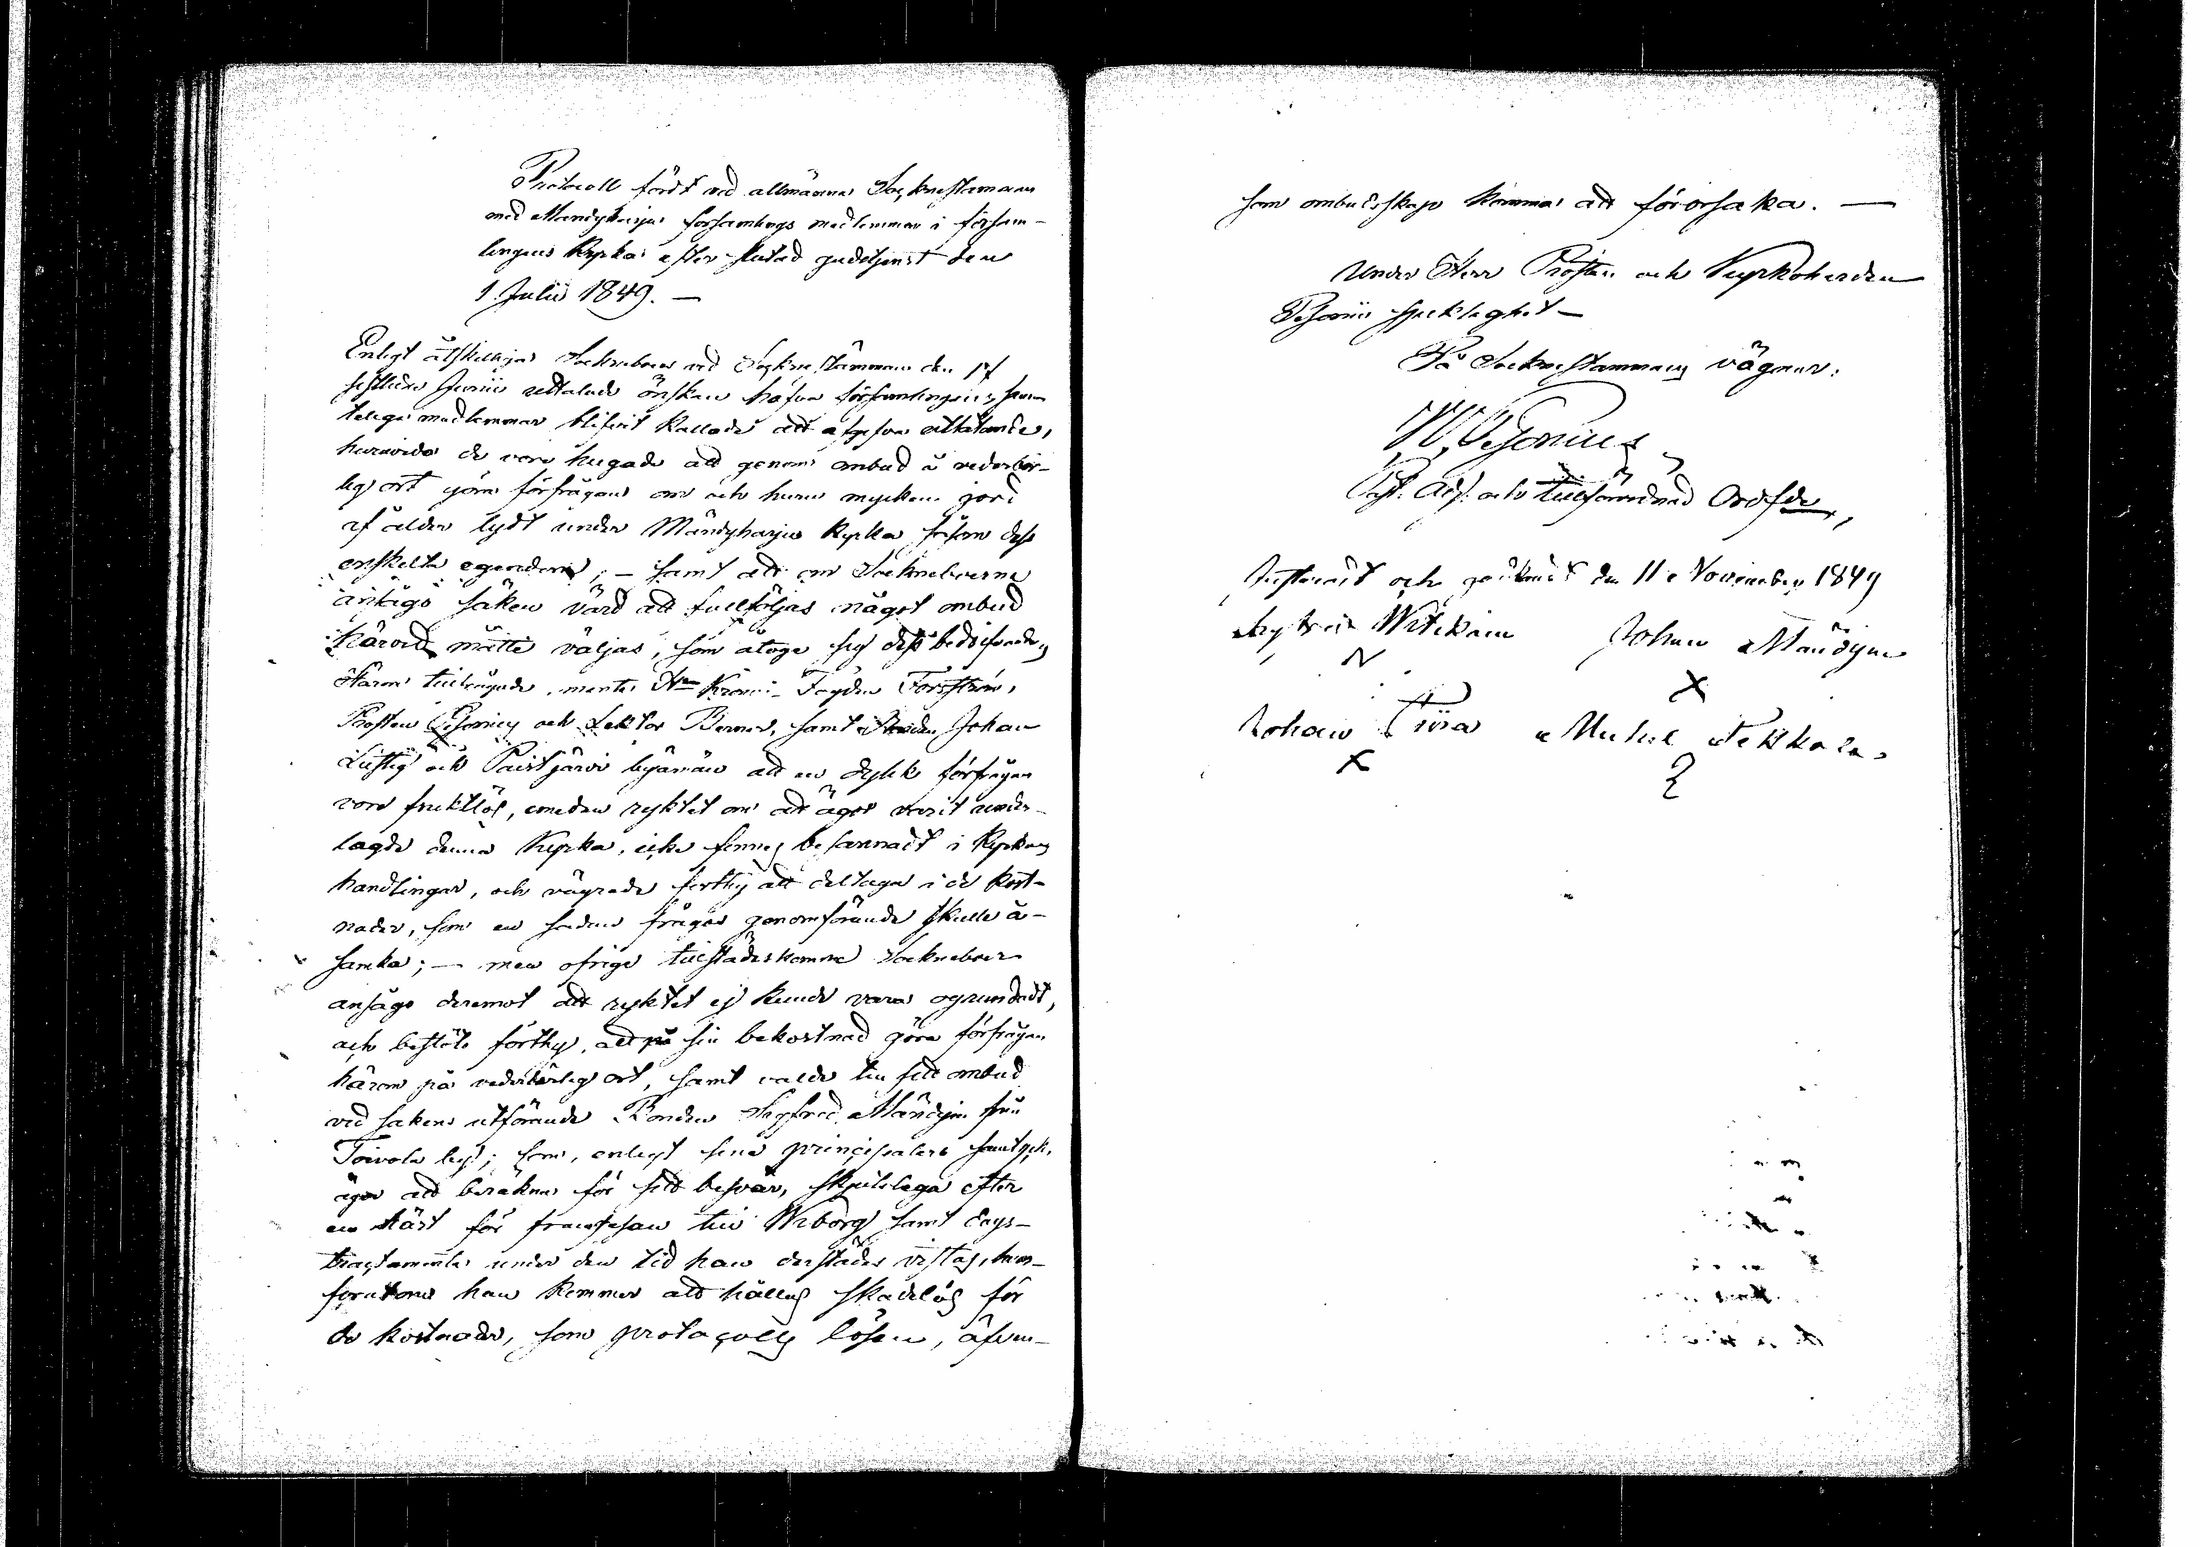 Protocoll fördt vid allmänna Socknestämman
med Mändyharju församlings medlemmar i försam-
lingens Kyrka efter slutad gudstjenst den
1 Julii 1849. —
Enligt åtskillige Sockneboers vid Socknestämman den 17
sistledne Junii uttalade önskan hafva församlingens sam-
telige medlemmar blifvit kallade att afgifva utlåtande,
huruvida de voro hugade att genom ombud å vederbör-
lig ort göra förfrågan om och huru mycken jord
af ålder lydt under Mändyharju Kyrka såsom dess
enskelta egendom; — samt att om Sockneboerne
ansågo saken värd att fullföljas något ombud
härvid måtte väljas, som åtoge sig dess bedrifvande,
Härom tillfrågade, mente Hrr Krono-Fogden Forsström,
Prosten Pesonius och Lektor Berner, samt Bonden Johan
Lustig och Paistjärvi byamän att en dylik förfrågan
vore fruktlös, emedan ryktet om att ägor varit under-
lagde denna Kyrka, icke finnes besannadt i Kyrkans
handlingar, och vägrade förthy att deltaga i de kost-
nader, som en sådan frågas genomförande skulle å-
samka; — men öfrige tillstädeskomne Sockneboer
ansågo deremot att ryktet ej kunde vara ogrundadt,
och beslöto förthy, att på sin bekostnad göra förfrågan
härom på vederbörlig ort, samt valde till sitt ombud
vid sakens utförande Bonden Sigfred Mändyin från
Toivola by; som, enligt sina principalers samtycke,
äger att beräkna för sitt besvär, skjutslega efter
en häst för framresan till Wiborg samt dags-
tractamente under den tid han derstädes vistas, hvar-
förutom han kommer att hållas skadelös för
de kostnader, som protocolls lösen, äfven-
som ombudsskap komma att förorsaka. —
Under Herr Prosten och Kyrkoherden
Pesonii sjuklighet —
På Socknestämmans vägnar:
W. Pesonius
Past. Adj. och tillförordnad Ordfde,
Justeradt och godkändt den 11 November 1849
Witikain Johan Mändyin
N X
Johan Tiira Mickel Tekkala
X 2